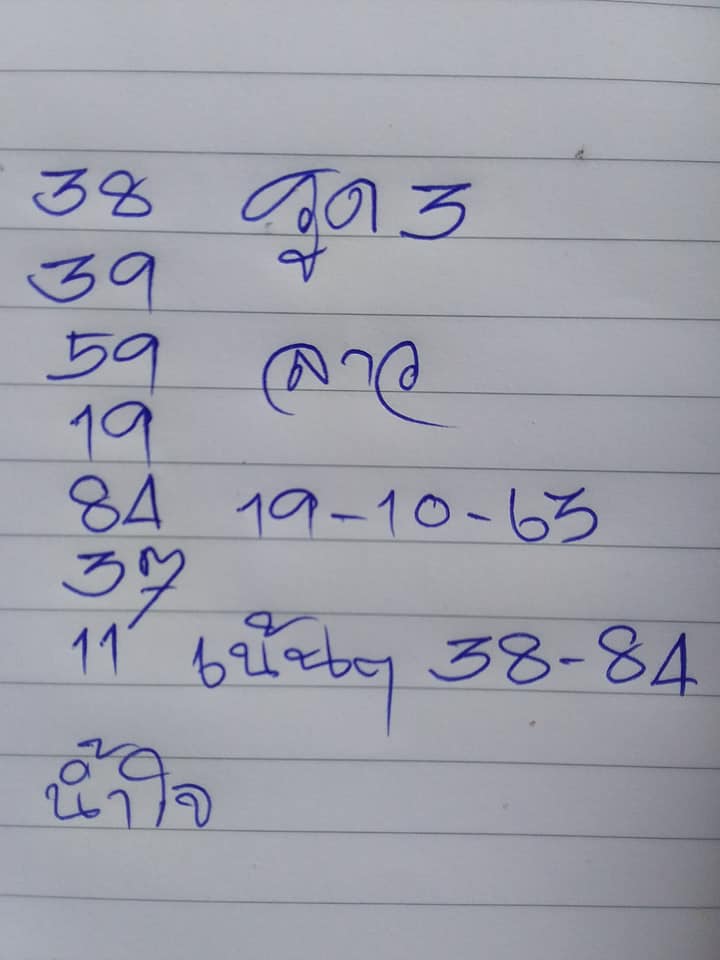 38 รูด 3
39
59 ลาว
19
84 19-10-63
37
11 เน้นๆ 38-84
น้ำใจ